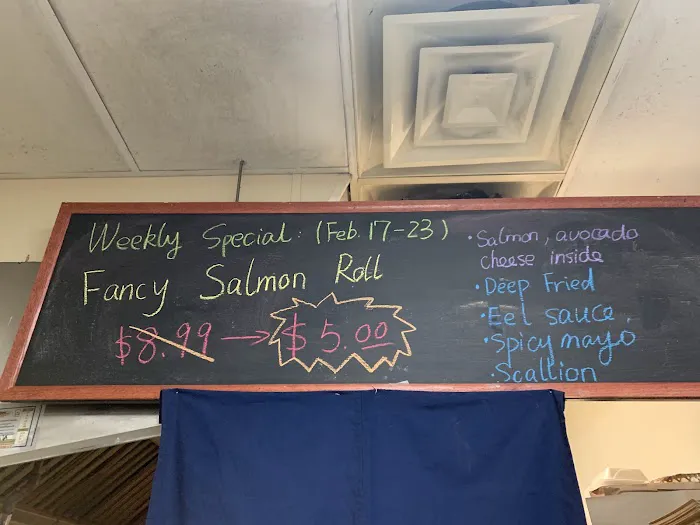 Weekly Special: (Feb. 17-23)
Fancy Salmon Roll
$8.99 → $5.00
·Salmon, avocado
cheese inside
·Deep Fried
·Eel sauce,
·Spicy mayo
·Scallion